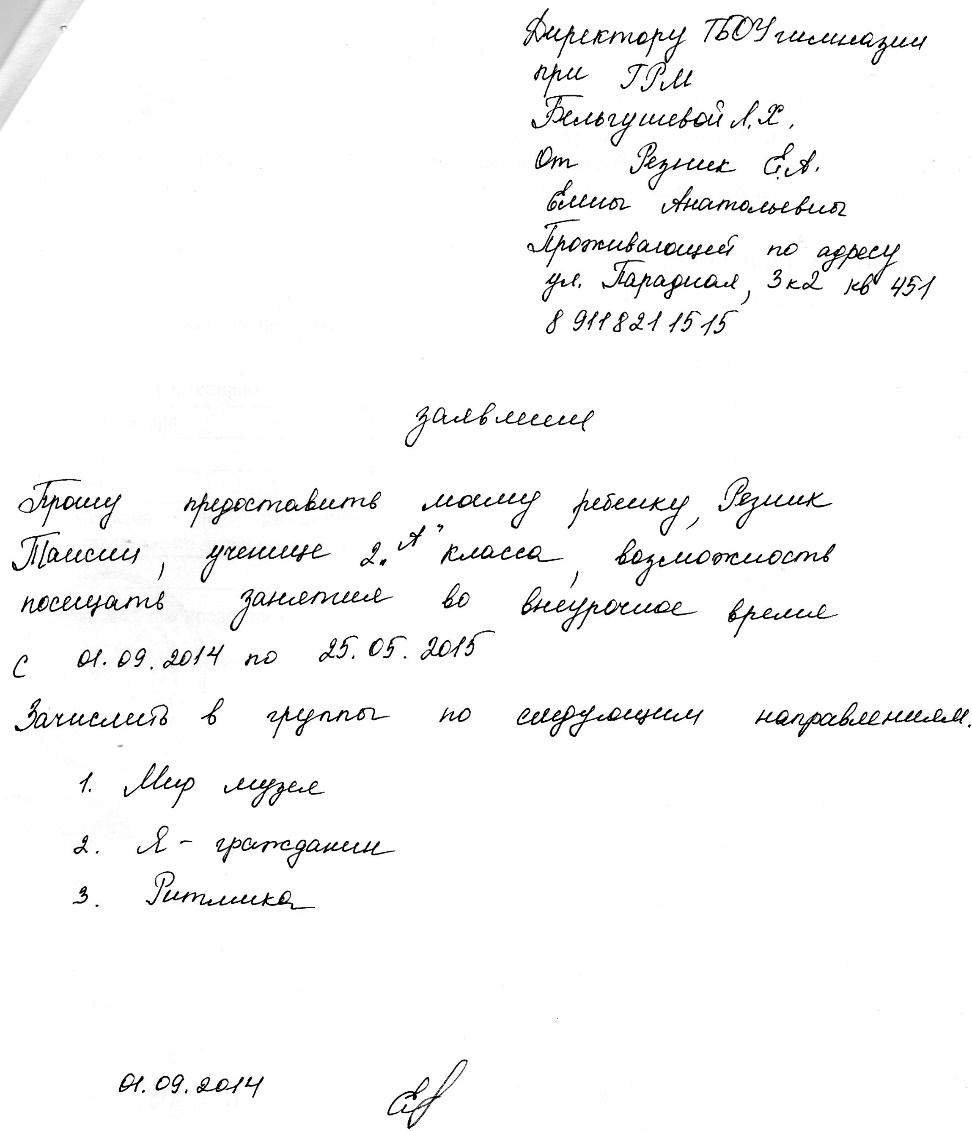 Директору ГБОУ гимназии
при ГРМ
Бельгушевой Л.Х.
От Резник Е.А.
Елены Анатольевны
Проживающей по адресу
ул. Парадная, 3к2 кв 451
8 911 821 15 15
заявление
Прошу предоставить моему ребенку, Резник
Таисии, ученице 2 „А" класса, возможность
посещать занятия во внеурочное время
с 01.09.2014 по 25.05.2015
Зачислить в группы по следующим направлениям.
1. Мир музея
2. Я - гражданин
3. Ритмика
01.09.2014